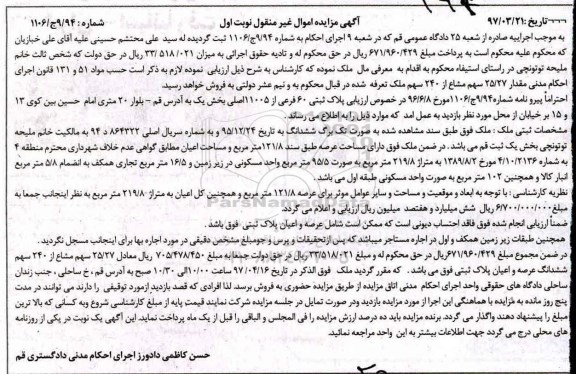 تاریخ: ۹۷/۰۳/۲۱ آگهی مزایده اموال غیر منقول نوبت اول شماره : ۹/۹۴ج/۱۱۰۶
به موجب اجراییه صادره از شعبه ۲۵ دادگاه عمومی قم که در شعبه ۹ اجرای احکام به شماره ۹/۹۴ج/۱۱۰۶ ثبت گردیده له سید علی محتشم حسینی علیه آقای علی خبازیان
که محکوم علیه محکوم است به پرداخت مبلغ ۶۷۱/۹۶۰/۴۲۹ ریال در حق محکوم له و تادیه حقوق اجرائی به میزان ۳۳/۵۱۸/۰۲۱ ریال در حق دولت که شخص ثالث خانم
ملیحه توتونچی در راستای استیفاء محکوم به اقدام به معرفی مال ملک نموده که کارشناس به شرح ذیل ارزیابی نموده لازم به ذکر است حسب مواد ۵۱ و ۱۳۱ قانون اجرای
احکام مدنی مقدار ۲۵/۲۷ سهم مشاع از ۲۴۰ سهم ملک تعرفه شده در قبال محکوم به و نیم عشر دولتی به فروش خواهد رسید.
احتراماً پیرو نامه شماره ۹/۹۴ج/۱۱۰۶ مورخ ۹۶/۶/۸ در خصوص ارزیابی پلاک ثبتی ۶۰ فرعی از ۱۱۰۰۵ اصلی بخش یک به آدرس قم – بلوار ۲۰ متری امام حسین بین کوی ۱۳
و ۱۵ بر خیابان از محل مورد نظر بازدید به عمل امد که موارد ذیل را به اطلاع می رساند.
مشخصات ثبتی ملک : ملک فوق طبق سند مشاهده شده به صورت تک برگ ششدانگ به تاریخ ۹۵/۱۲/۲۴ و به شماره سریال اصلی ۸۶۴۳۲۲ د ۹۴ به مالکیت خانم ملیحه
توتونچی بخش یک ثبت قم می باشد . در ضمن ملک فوق دارای مساحت عرصه طبق سند ۱۲۱/۸متر مربع و مساحت اعیان مطابق گواهی عدم خلاف شهرداری محترم منطقه ۴
به شماره ۴/۱۰/۲۱۳۶ مورخ ۱۳۸۹/۸/۲ به متراژ ۲۱۹/۸ متر مربع به صورت ۹۵/۵ متر مربع واحد مسکونی در زیر زمین و ۱۶/۵ متر مربع تجاری همکف به انضمام ۵/۸ متر مربع
انبار کالا و همچنین ۱۰۲ متر مربع به صورت واحد مسکونی طبقه اول می باشد .
نظریه کارشناسی : با توجه به ابعاد و موقعیت و مساحت و سایر عوامل موثر برای عرصه ۱۲۱/۸ متر مربع و همچنین کل اعیان به متراژ ۲۱۹/۸۰ متر مربع به نظر اینجانب جمعا به
مبلغ ۶/۷۰۰/۰۰۰/۰۰۰ ریال شش میلیارد و هفتصد میلیون ریال ارزیابی و اعلام می گردد.
ضمناً ارزیابی انجام شده فوق فاقد احتساب دیونی است که ممکن است شامل عرصه و اعیان پلاک ثبتی فوق باشد .
همچنین طبقات زیر زمین همکف و اول در اجاره مستاجر میباشند که پس از تحقیقات و پرس و جو مبلغ مشخص دقیقی در مورد اجاره بها برای اینجانب مسجل نگردید .
در ضمن مجموع مبلغ ۶۷۱/۹۶۰/۴۲۹ ریال در حق محکوم له و مبلغ ۳۳/۵۱۸/۰۲۱ ریال در حق دولت جمعا به مبلغ ۷۰۵/۴۷۸/۴۵۰ ریال معادل ۲۵/۲۷ سهم مشاع از ۲۴۰ سهم
ششدانگ عرصه و اعیان پلاک ثبتی فوق می باشد . که مقرر گردید ملک فوق الذکر در تاریخ ۹۷/۰۴/۱۶ ساعت ۱۰/۰۰ الی ۱۰/۳۰ صبح به آدرس قم ، خ ساحلی ، جنب زندان
ساحلی دادگاه های حقوقی واحد اجرای احکام مدنی اتاق مزایده از طریق مزایده حضوری به فروش برسد. لذا افرادی که قصد بازدید از مورد توقیفی را دارند می توانند در مدت
پنج روز مانده به مزایده با هماهنگی این اجرا از مورد مزایده بازدید و در صورت تمایل در جلسه مزایده شرکت نمایند قیمت پایه از مبلغ کارشناسی شروع و به کسانی که بالا ترین
مبلغ را پیشنهاد دهند واگذار می گردد. برنده مزایده باید ده درصد ارزش مزایده را فی المجلس و الباقی را قبل از یک ماه پرداخت نماید. این آگهی یک نوبت در یکی از روزنامه
های محلی درج می گردد جهت اطلاعات بیشتر به این واحد مراجعه نمائید.
حسن کاظمی دادورز اجرای احکام مدنی دادگستری قم